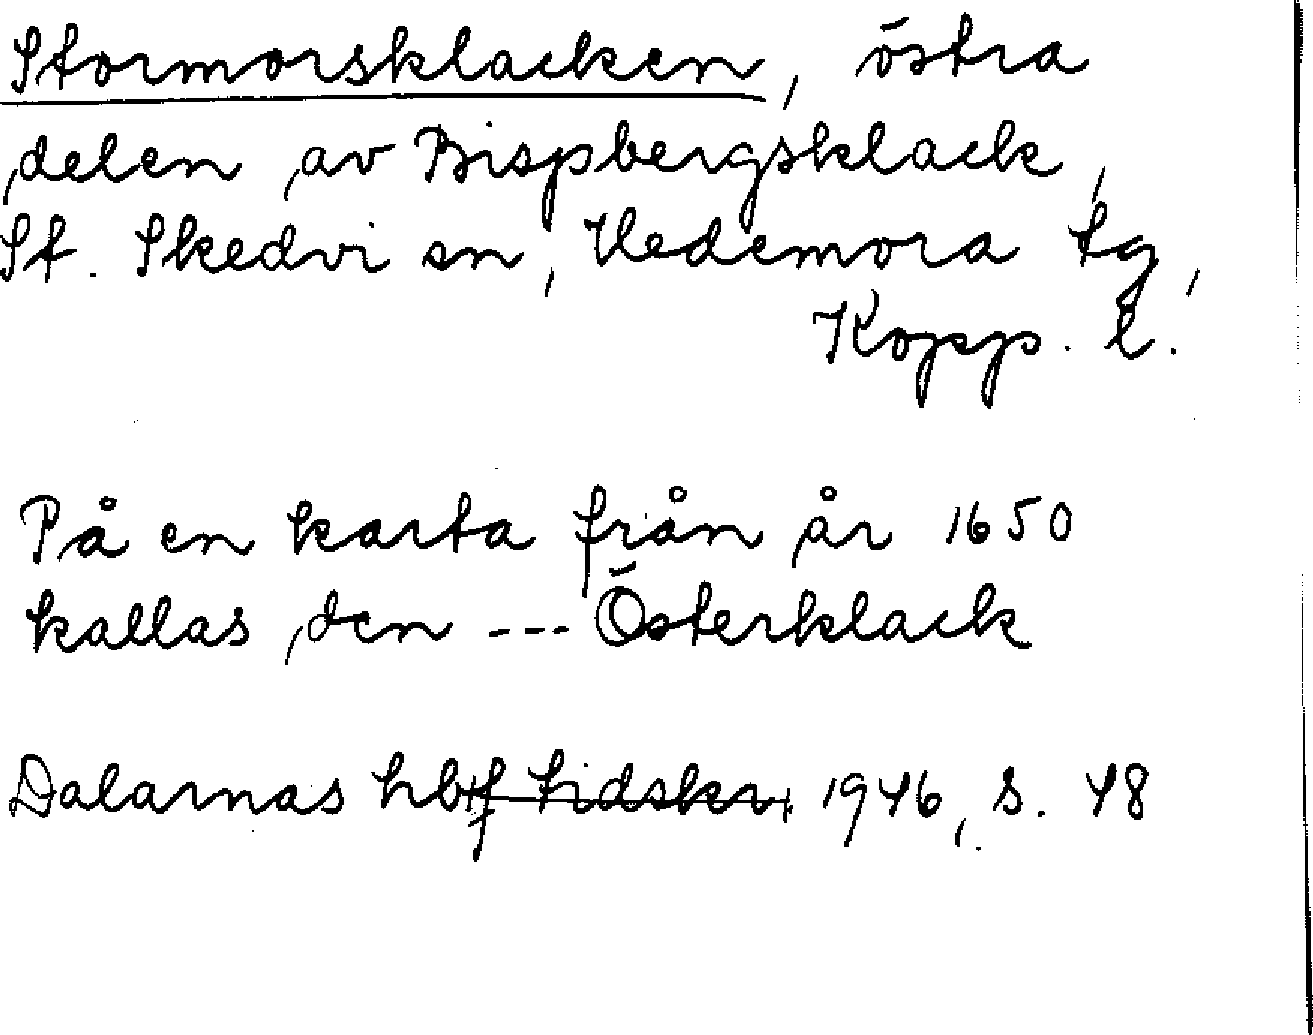 Stormorsklacken, östra
delen av Bispbergsklack,
St. Skedvi sn, Hedemora tg,
Kopp. l.
På en karta från år 1650
kallas den --- Österklack
Dalarnas hbf tidskr. 1946, s. 48